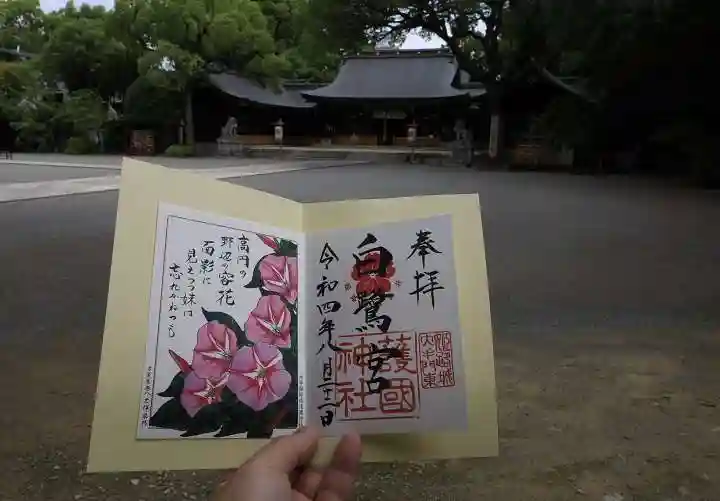 奉拝
白鷺宮
護國
神社
姫路城
大手門東
令和四年八月二十一日
高円の
野辺の容花
面影に
見えつつ妹は
忘れかねつも